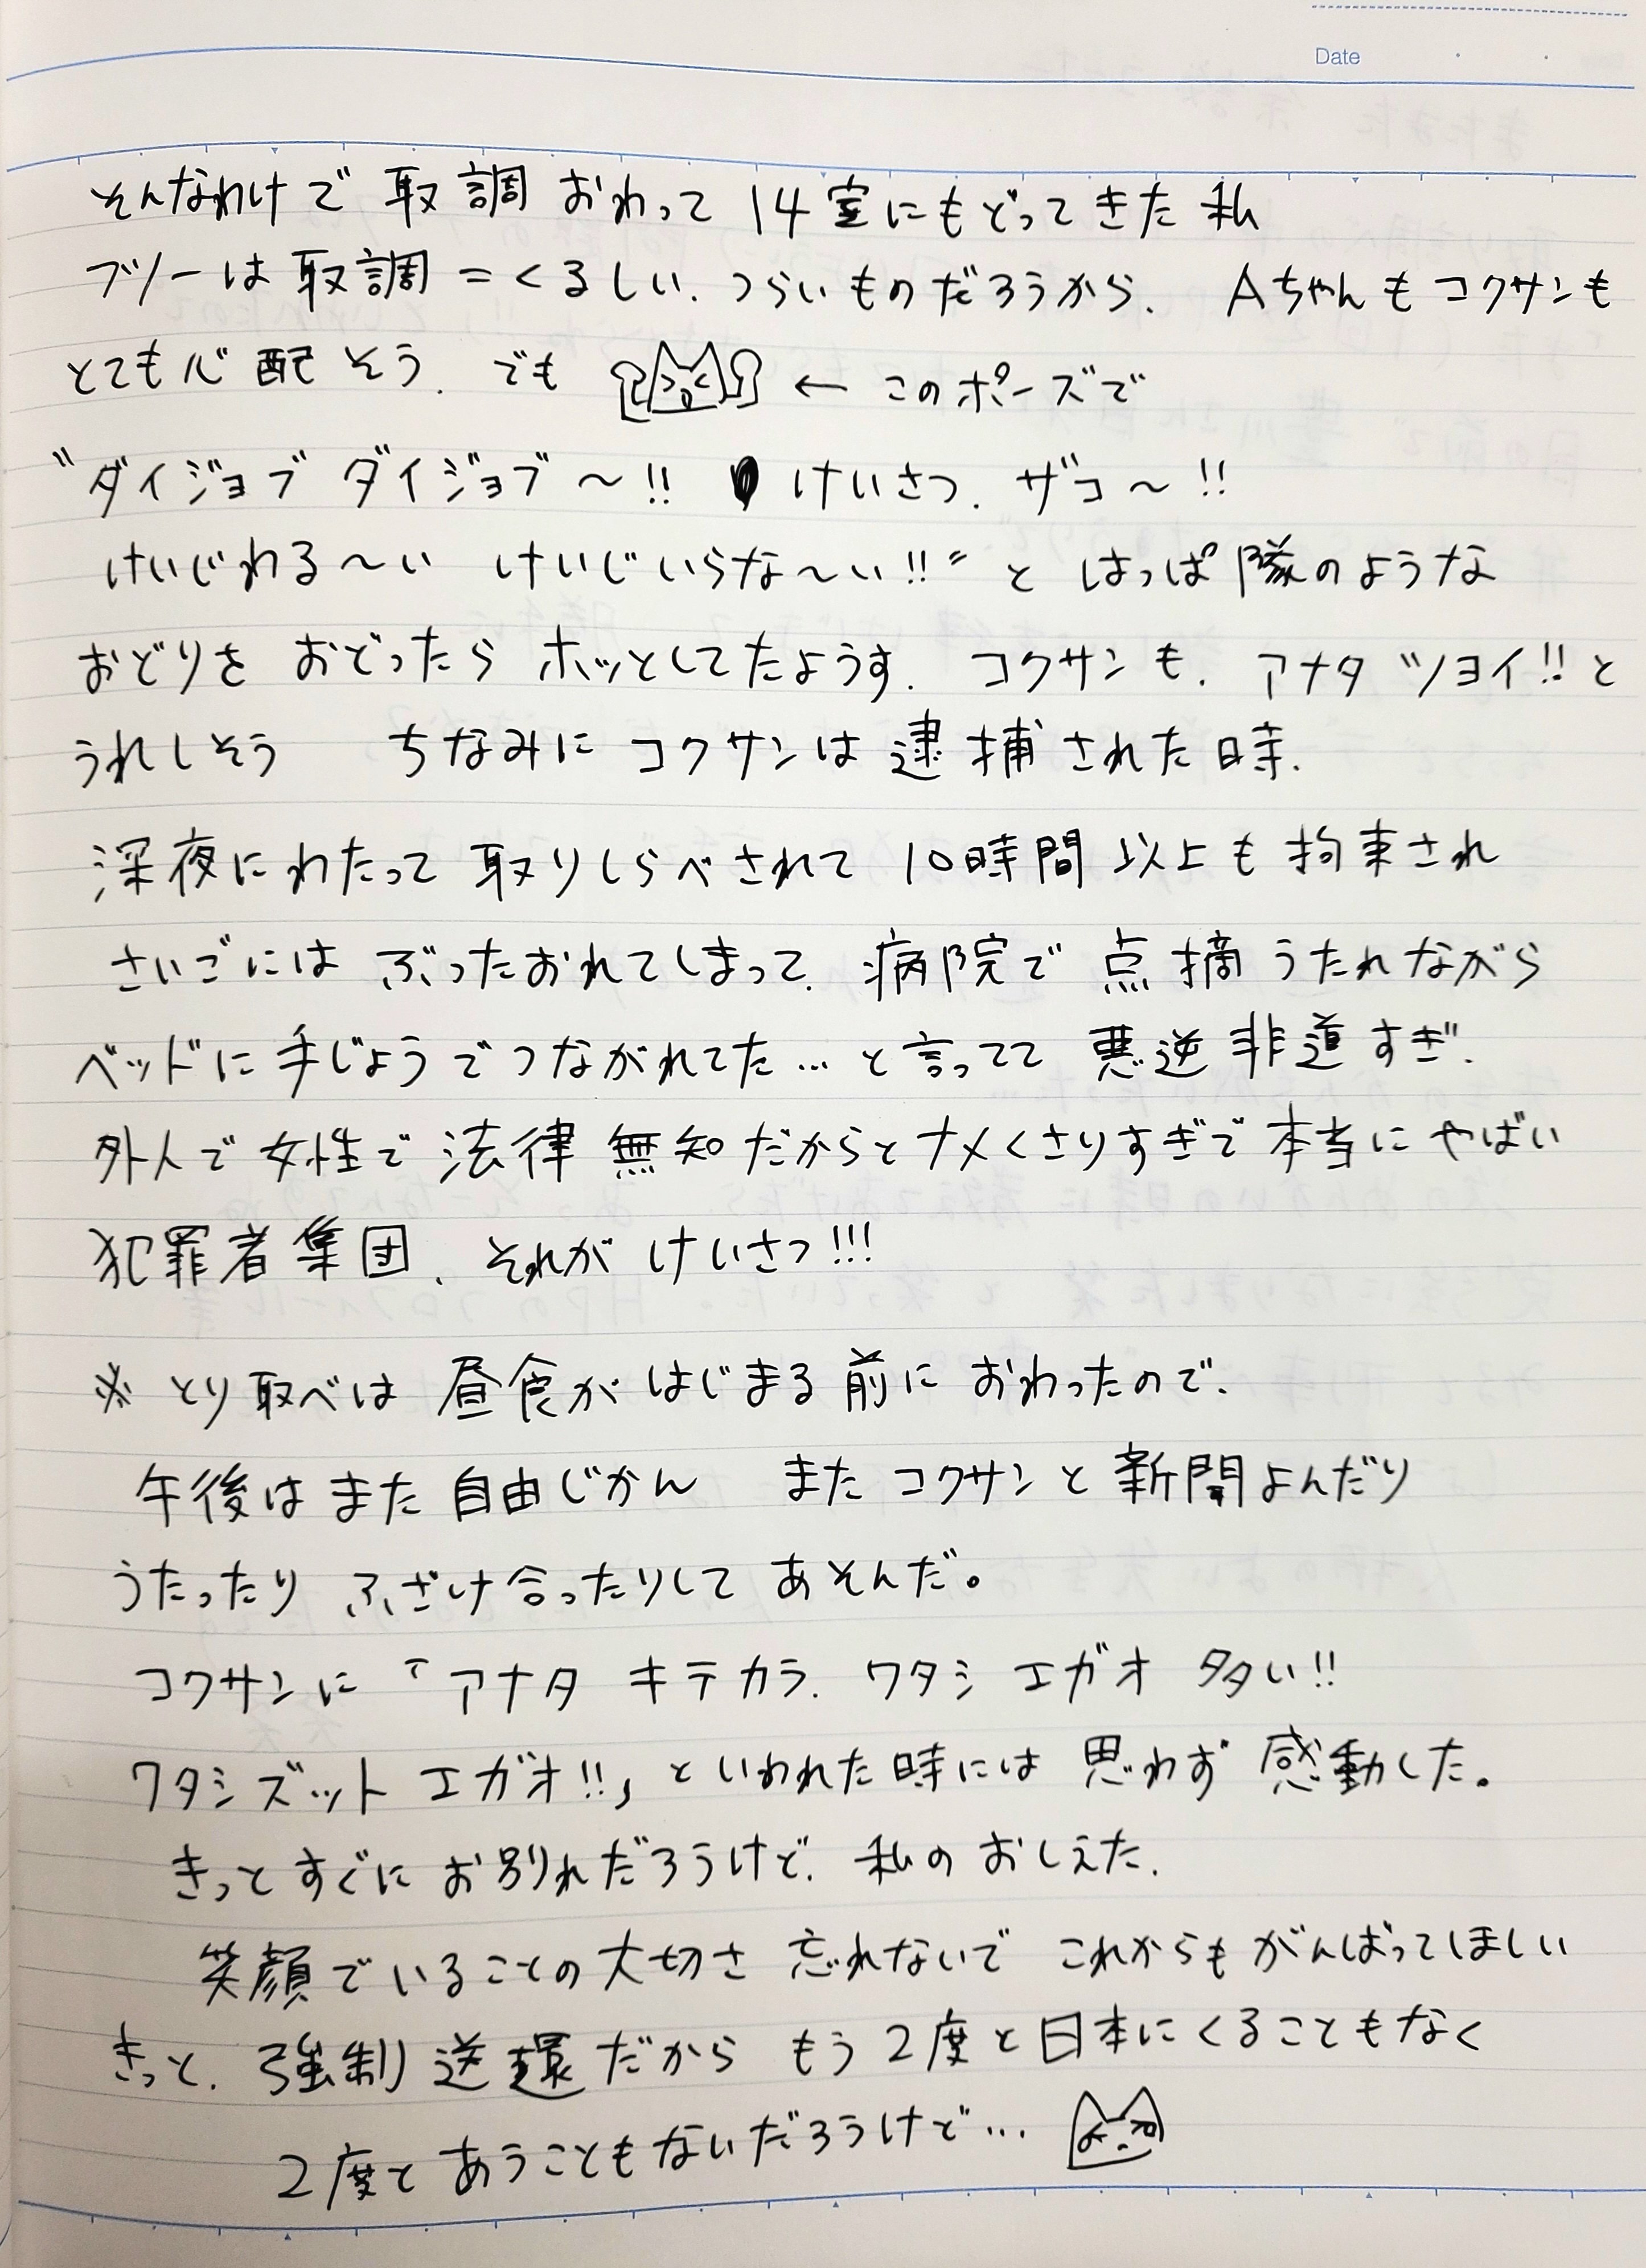 Date
そんなわけで 取調 おわって 14室にもどってきた 私
フツーは 取調 = くるしい、つらいものだろうから、 Aちゃんもコクサンも
とても心配そう、でも ← このポーズで
〝ダイジョブ ダイジョブ～!! けいさつ、ザコ～!!
けいじわる～い けいじいらな～い!!〟と はっぱ隊のような
おどりを おどったら ホッとしてたようす、 コクサンも、アナタ ツヨイ!! と
うれしそう ちなみに コクサンは 逮捕された時、
深夜にわたって 取りしらべされて 10時間以上も 拘束され
さいごには ぶったおれてしまって、病院で 点摘うたれながら
ベッドに 手じょうでつながれてた… と言ってて 悪逆非道すぎ、
外人で 女性で 法律無知だからとナメくさりすぎで 本当に やばい
犯罪者集団、それが けいさつ!!!
※ とり取べは 昼食が はじまる前に おわったので、
午後はまた 自由じかん また コクサンと 新聞よんだり
うたったり ふざけ合ったりして あそんだ。
コクサンに「アナタ キテカラ、ワタシ エガオ 多い!!
ワタシ ズット エガオ!!」といわれた時には 思わず 感動した。
きっと すぐに お別れだろうけど、私の おしえた、
笑顔でいることの大切さ 忘れないで これからも がんばってほしい
きっと、強制送還だから もう2度と日本にくることもなく
2度と あうこともないだろうけど…